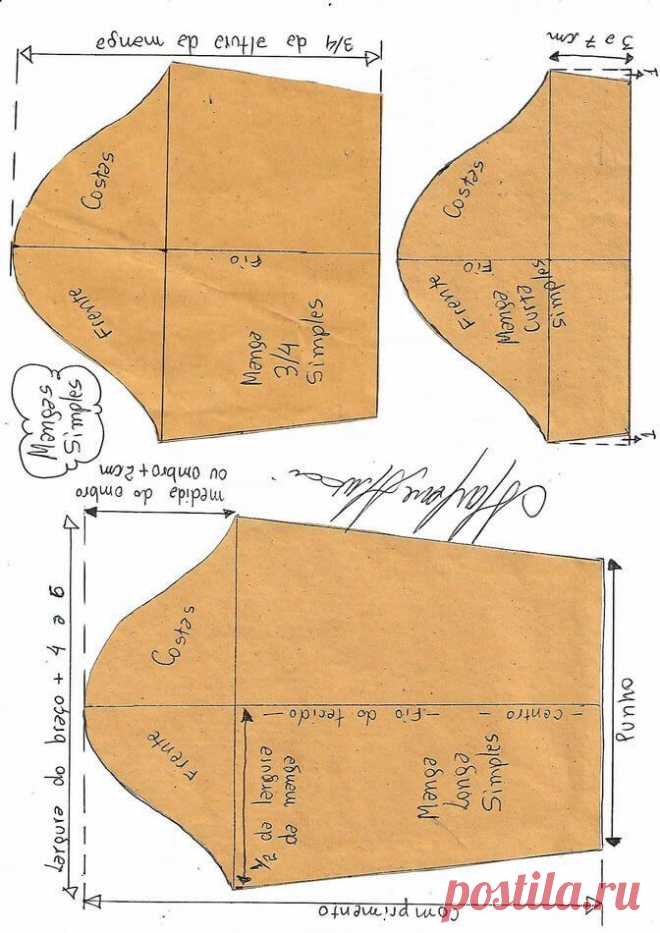 3/4 da altura da manga
Costas
Frente
Fio
Manga
3/4
Simples
Mangas
Simples
3 a 7 cm
1
1
Costas
Frente
Fio
Manga
Curta
Simples
medida do ombro
ou ombro + 2 cm
largura do braço + 4 a 6
Costas
Frente
1/2 da largura
da manga
centro - Fio do tecido
Manga
Longa
Simples
Punho
Comprimento
postila.ru